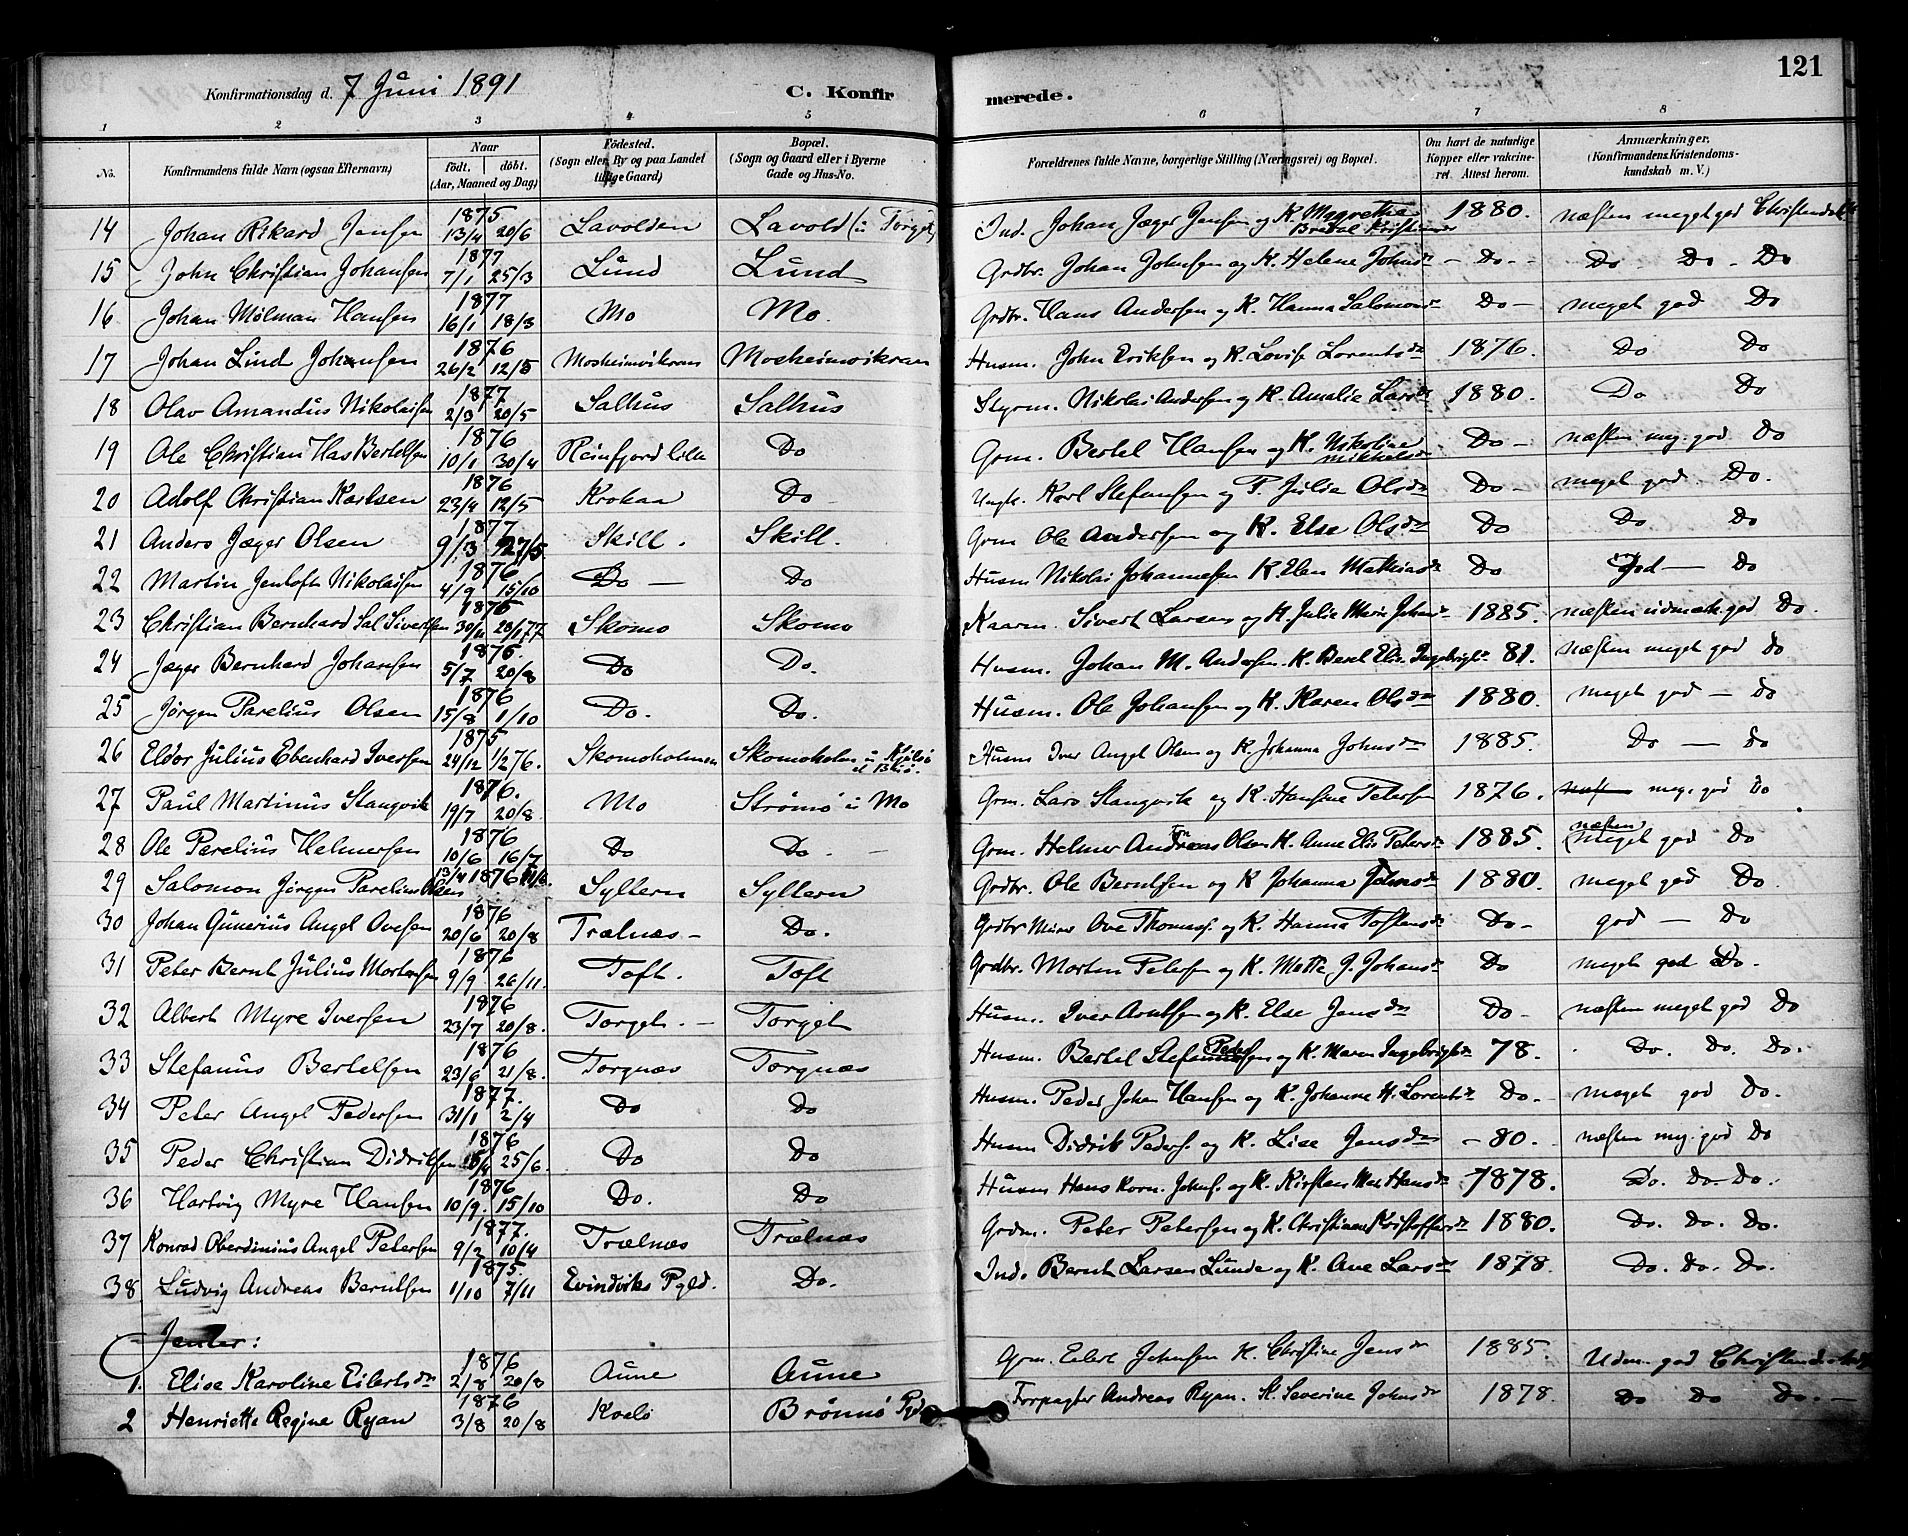 121
Konfirmationsdag d. 7 Juni 1891 C. Konfirmerede.
1 2 3 4 5 6 7 8
No. Konfirmandens fulde Navn (ogsaa Efternavn) Naar Födt, döbt. (Aar, Maaned og Dag) Födested. (Sogn eller By og paa Landet tillige Gaard) Bopæl. (Sogn og Gaard eller i Byerne Gade og Hus-No. Forældrenes fulde Navne, borgerlige Stilling (Næringsvei) og Bopæl. Om havt de naturlige Kopper eller vakcineret. Attest herom. Anmærkninger. (Konfirmandens Kristendomskundskab m. V.)
14 Johan Rikard Jensen 1875 13/4 20/6 Lavolden Lavold (i Torget) Ind. Johan Jæger Jensen og K. Magrethe Bretal Kristians 1880. næsten meget god Christendsk
15 John Christian Johansen 1877 7/1 25/3 Lund Lund Grdbr. Johan Johnsen og K. Helene Johnsdr - Do - Do Do - Do
16 Johan Mølman Hansen 1877 16/1 18/3 Mo Mo. Grdbr. Hans Andersen og K. Hanna Salomonsdr Do - meget god Do
17 Johan Lind Johansen 1876 26/2 12/5 Mosheimvikran Mosheimvikran Husm. John Eriksen og K. Lovise Lorentsdr 1876. Do Do
18 Olav Amandus Nikolaisen 1877 2/3 20/5 Salhus Salhus Styrm. Nikolai Andersen og K. Amalie Larsdr 1880. Do Do
19 Ole Christian Has Bertelsen 1876 10/1 30/4 Reinfjord lille Do Grm. Bertel Hansen og K. Nikoline Mikkelsdr Do - næsten meg. god Do
20 Adolf Christian Karlsen 1876 23/4 12/5 Krokaa Do - Ungk. Karl Stefansen og P. Julie Olsdr Do - meget god Do.
21 Anders Jæger Olsen 1877 9/3 27/5 Skill. Skill. Grm Ole Andersen og K. Else Olsdr Do Do Do
22 Martin Jentoft Nikolaisen 1876 4/9 15/10 Do - Do Husm Nikolai Johannesen K. Elen Mathiasdr Do God - Do
23 Christian Bernhard Sal Sivertsen 1876 30/11 28/1 77 Skomo Skomo Kaarm. Sivert Larsen og K. Julie Marie Johnsdr 1885. næsten udmærk. god Do.
24 Jæger Bernhard Johansen 1876. 5/7 20/8 Do Do. Husm. Johan M. Andersen. K. Beret Elis. Ingebrigtsdr 81. næsten meget god Do
25 Jørgen Parelius Olsen 1876 15/8 1/10 Do. Do. Husm. Ole Johansen og K. Karen Olsdr 1880. meget god - Do
26 Eldor Julius Ebenhard Iversen 1875 24/12 1/2 76. Skomoholmen Skomoholm Husm Iver Angel Olsen og K. Johanna Johnsdr 1885. Do - Do
27 Paul Martinus Stangvik 1876. 19/7 20/8. Mo Strømø i Mo Grm. Lars Stangvik og K. Hansine Petersen 1876. næst meg. god Do
28 Ole Parelius Helmersen 1876 10/6 16/7 Do Do. - Grm. Helmer Andreas Olsen K. Anne Elis Petersdr 1885. næsten meget god Do
29 Salomon Jørgen Parelius Olsen 13/4 1876 11/6. Syltern Syltern Grdbr. Ole Berntsen og K Johanna Johnsdr 1880. meget god Do.
30 Johan Gunerius Angel Ovesen 1876 20/6 20/8 Trælnæs - Do. Grdbr Ove Thomass. og K. Hanna Toftensdr Do - god - Do
31 Peter Bernt Julius Mortensen 1876 9/9 26/11. Toft. Toft Grdbr. Morten Petersen og K. Mette J. Johansdr Do meget god Do.
32 Albert Myre Iversen 1876 23/7 20/8. Torget. - Torget Husm. Iver Arntsen og K. Else Jensdr Do - næsten meget god Do
33 Stefanus Bertelsen 1876 23/6 21/8. Torgnæs Torgnæs Husm. Bertel Stefanussen Peder og K. Maren Ingebrigtsdr 78. Do. Do. Do.
34 Peter Angel Pedersen 1877. 31/1 2/4 Do Do Husm. Peder Johan Hansen og K. Johanne K. Lorentsdr Do. meget god Do.
35 Peder Christian Didriksen 1876 5/4 25/6. Do Do Husm Didrik Peders. og K. Lise Jensdr - 80. - næsten my. god Do
36 Hartvig Myre Hansen 1876 10/9. 15/10 Do. Do Husm Hans Korn. Johns. og K. Kirsten Mar Hansdr 1878. Do. Do. Do.
37 Konrad Oberdinius Angel Petersen 1877. 9/2 10/4 Trælnæs Trælnæs Grdm. Peter Petersen og K. Christiane Kristoffersdr 1880. Do. Do. Do.
38 Ludvig Andreas Berntsen 1875 1/10 7/11 Evindviks Pgld. Do. Ind. Bernt Larsen Lunde og K. Ane Larsdr 1878. Do. Do. Do.
Jenter:
1. Elise Karoline Eilertsdr 1876 2/8 20/8 Aune Aune Grm. Eilert Johnsen K. Christine Jensdr 1885. Udm. god Christendskdsk
2 Henriette Regine Ryan 1876 3/8 20/8 Kvelo Brønnø Pgld Forpagter Andreas Ryan. K. Severine Johnsdr 1878. Do Do Do. -